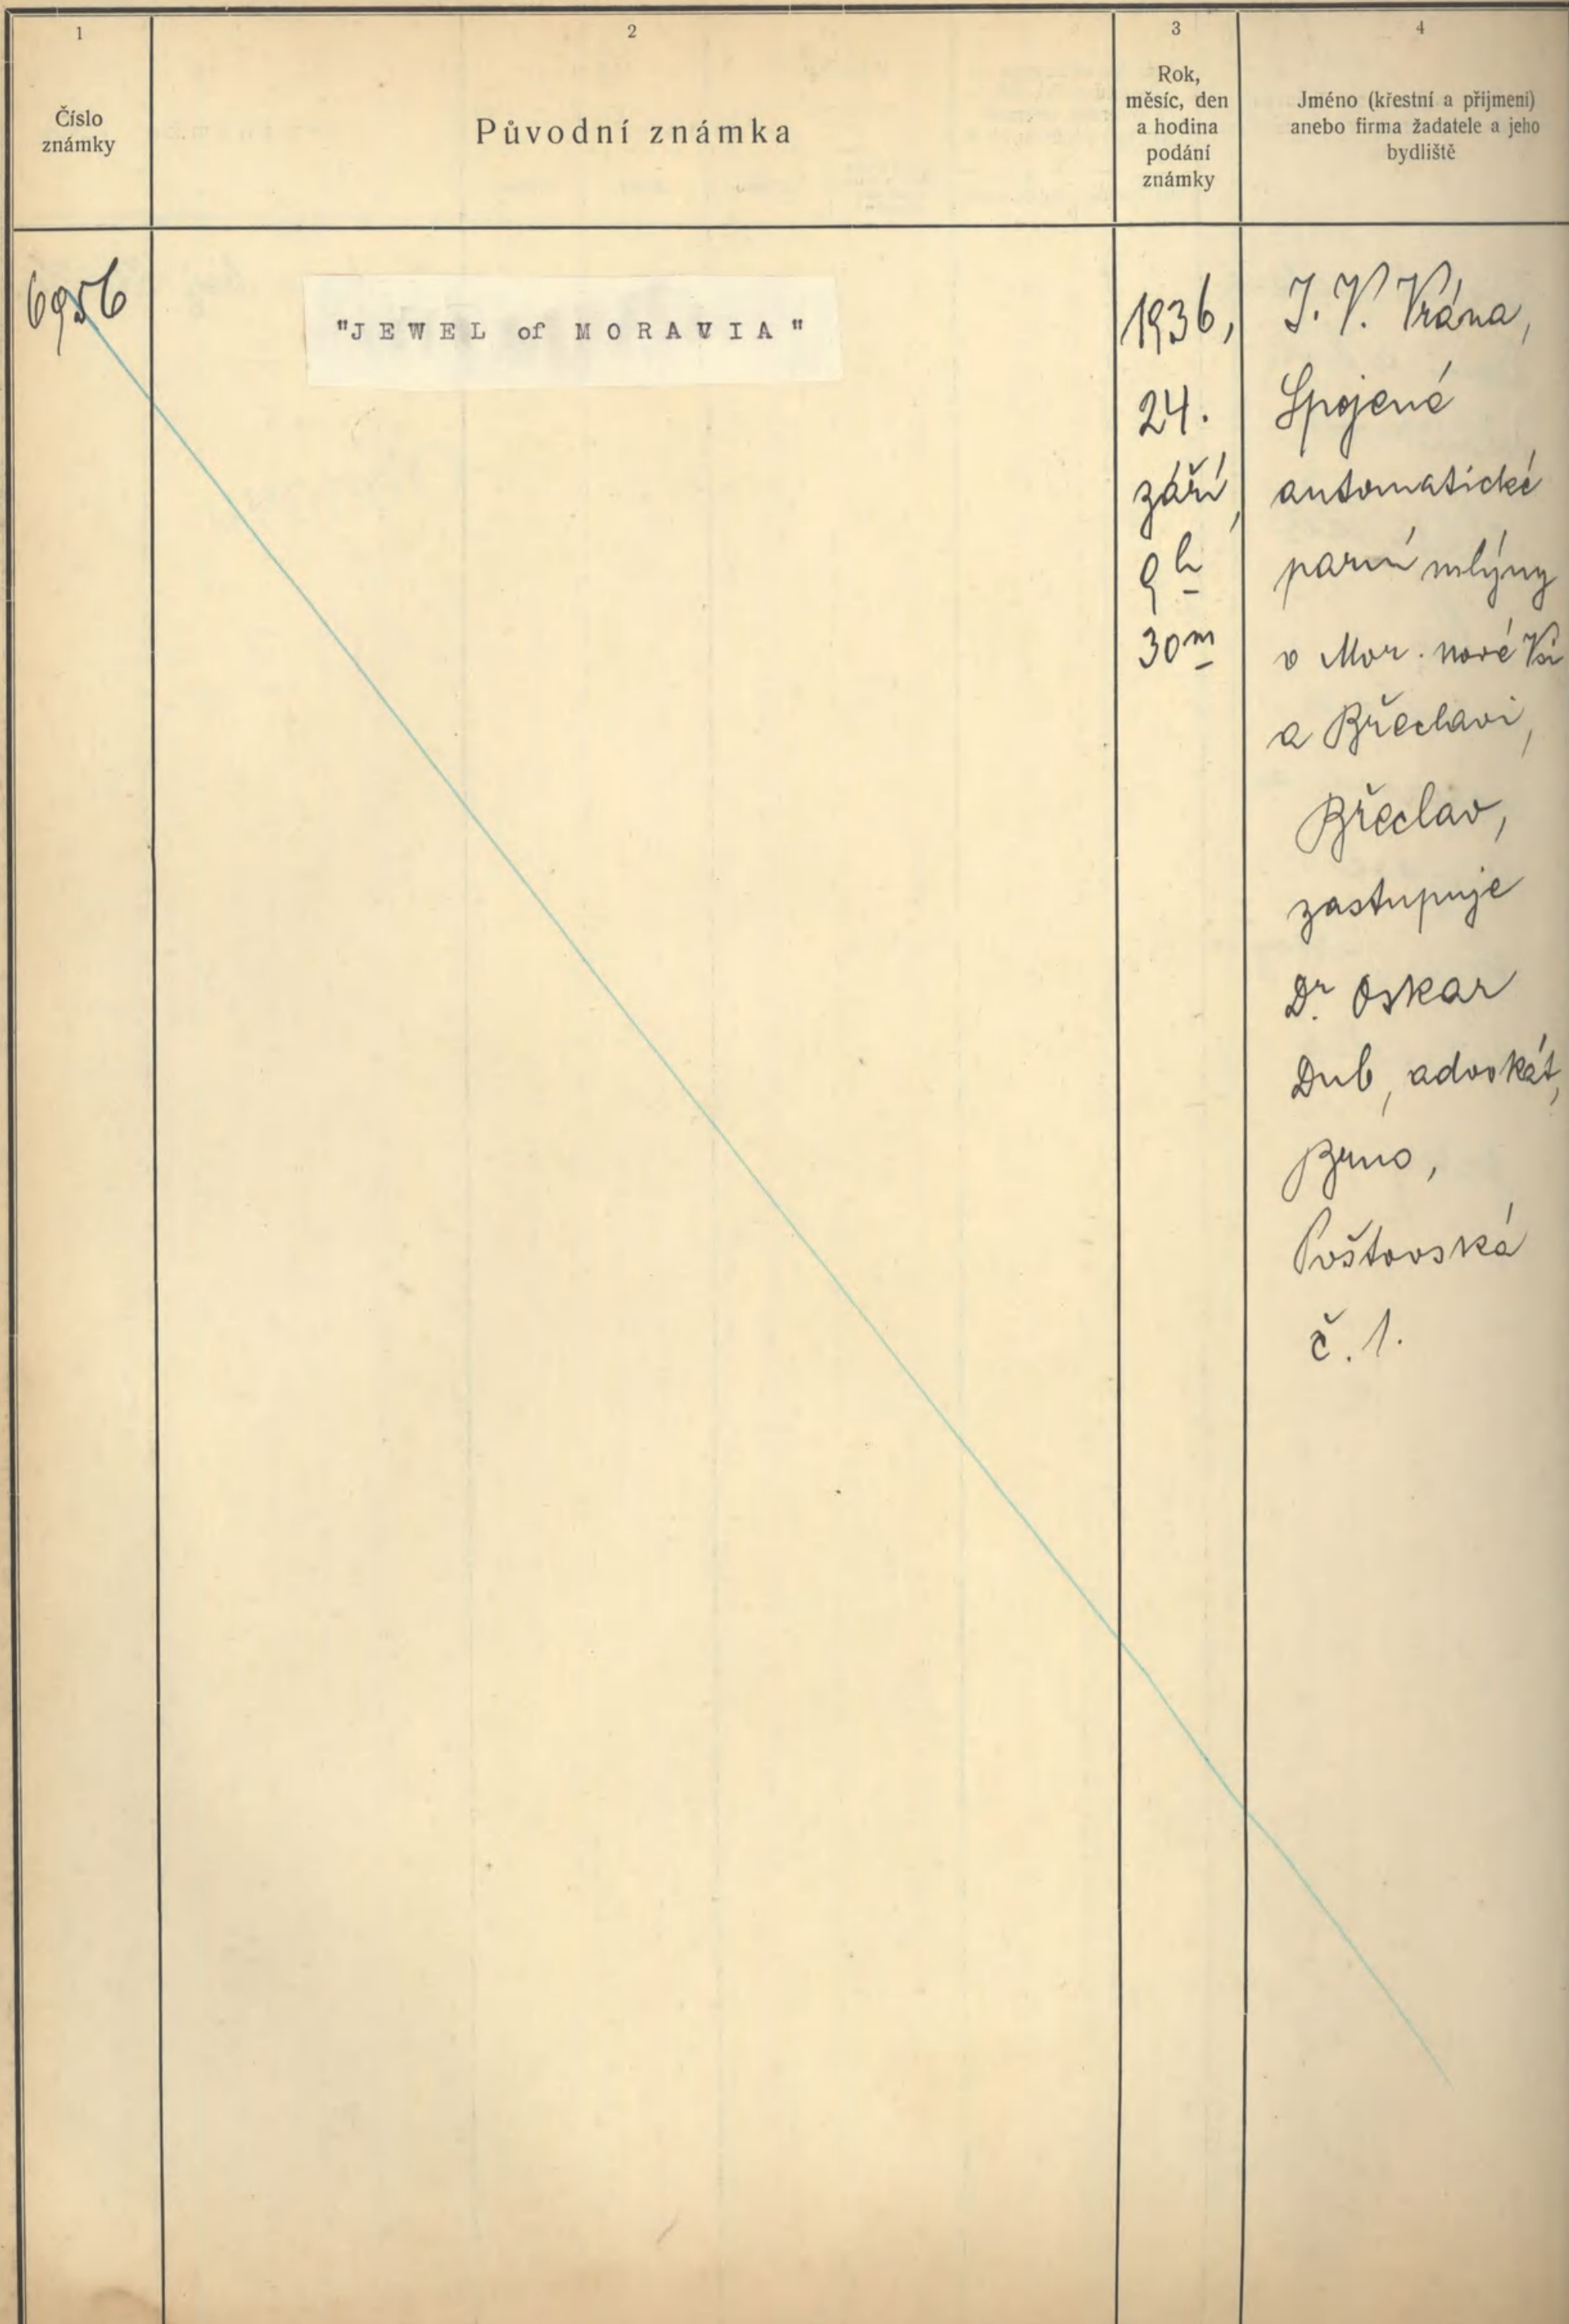 1
Číslo
známky
2
Původní známka
3
Rok,
měsíc, den
a hodina
podání
známky
4
Jméno (křestní a příjmení)
anebo firma žadatele a jeho
bydliště
6956
"JEWEL of MORAVIA"
1936,
24.
září,
9h
30m
J. V. Vrána,
Spojené
automatické
parní mlýny
v Mor. nové Vsi
a Břeclavi,
Břeclav,
zastupuje
Dr. Oskar
Dub, advokát,
Brno,
Poštovská
č. 1.